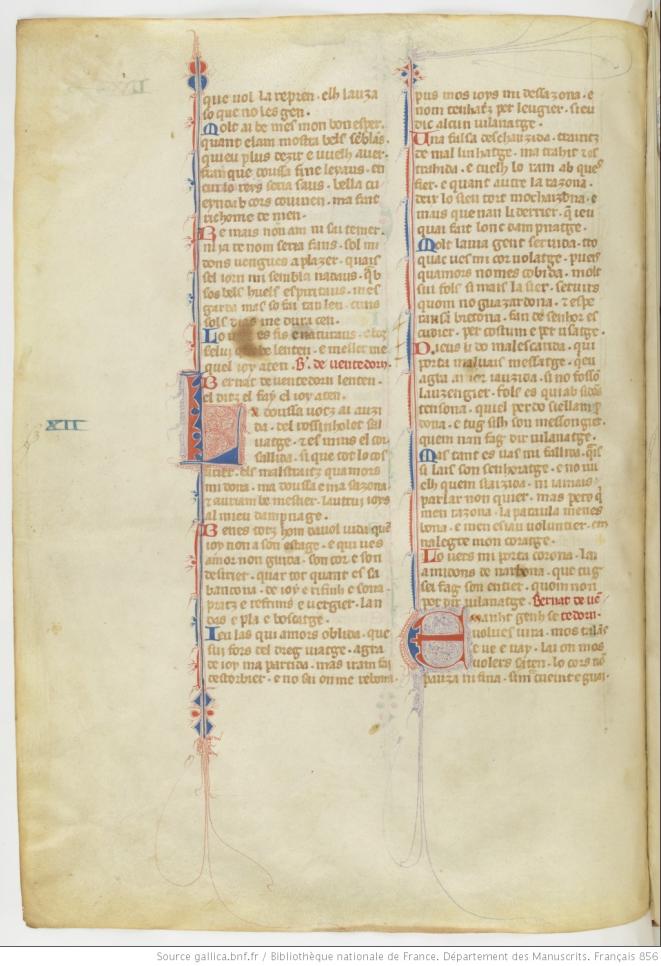 que uol la repren · elh lauza
so que no les gen ·
Molt ai be mes mon bon esper ·
quant elam mostra bels sēblās ·
quieu plus dezir e uuelh auer ·
franque doussa fine leyaus · en
cui lo reys seria saus · bella cu
eynda b cors couinen · ma fait
ric home de nien ·
Re mais non am ni sai temer ·
ni ia re nom seria fans · sol mi
dons uengues a plazer · quais
sel iorn mi sembla nadaus · qāb
sos bels huels espiritaus · mes
garda mas so fai tan len · cuns
sols dias me dura cen ·
Lo uers es fis e naturaus · e bos
selui be lenten · e meller me
quel ioy aten · B'. de uentedorn ·
Bernat de uentedorn lenten ·
el ditz el fay el ioy aten ·
XII
La doussa uotz ai auzi
da · del rossinholet sal
uatge · et es mins el cor
sallida · si que tot lo cos
sirier · els malstraitz quamors
mi dona · ma doussa e ma sazona ·
et auriam be mestier · lautrui ioys
al mieu dampnatge ·
Benes totz hom dauol uida que
ioy non a son estage · e qui ues
amor non guida · son cor e son
desirier · quar tot quant es sa
bandona · de ioy e tifinh e sona ·
pratz e refrims e uergier · lan
das e pla e boscatge ·
Ieu las qui amors oblida · que
sui fors del dreg uiatge · agra
de ioy ma partida · mas iram fai
destorbier · e no sai on me repona ·
pus mos ioys mi dessazona · e
nom tenhatz per leugier · sieu
dic alcun uilanatge ·
Una falsa deschauzida · trairitz
de mal linhatge · ma trahit et es
trahida · e cuelh lo ram ab ques
fier · e quant autre la razona ·
deir lo sieu tort mochaizōna · e
mais que nan li derrier · q̄ ieu
quai fait lonc dampnatge ·
Molt lauia gent seruida · tro
quac ues mi cor uolatge · pueis
quamors nomes cobida · molt
sui fols si mais la sier · seruirs
quom no guazardona · et espe
ransa bretona · fan de senhor es
cudier · per costum e per usatge ·
Dieus li do mal escarida · qui
porta maluais messatge · queu
agra amor iauzida · si no fosso
lauzengier · fols es qui ab sidōs
tensona · quel perdo siellam p
dona · e tug silh son messongier ·
quem nan fag dir uilanatge ·
Mas tant es uas mi fallida · q̄is
si lais son senhoratge · e no uu
elh quem siaizida · ni iamais
parlar non quier · mas pero q̄
men razona · la paraula menes
bona · e men esiau uoluntier · em
nalegre mon coratge ·
Lo uers mi porta corona · lai
a midons de narbona · que tug
sei fag son entier · quom non
pot dir uilanatge · Bernat de uē
tedorn ·
Tt
mauht genh se
uolues una · mos talās
e ue e uay · lai on mos
uolers saten · lo cors nō
pauza ni fina · sim cueint e guai ·
Source gallica.bnf.fr / Bibliothèque nationale de France. Département des Manuscrits. Français 856